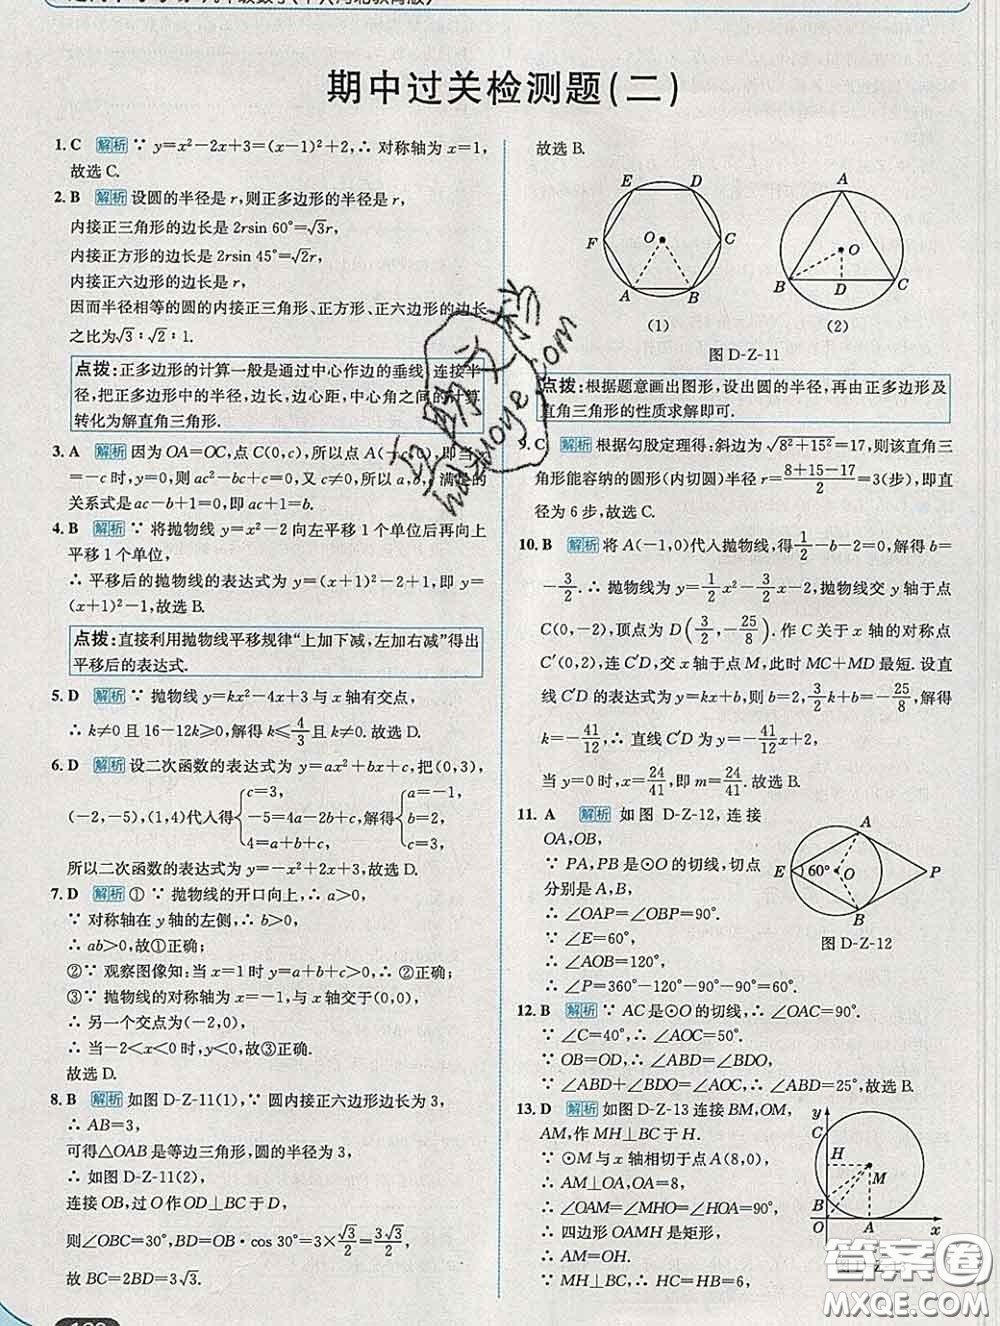 期中过关检测题(二)
1. C 解析 ∵ y=x²-2x+3=(x-1)²+2,∴ 对称轴为 x=1,
故选 C.
2. B 解析 设圆的半径是 r,则正多边形的半径是 r,
内接正三角形的边长是 2rsin 60°=√3r,
内接正方形的边长是 2rsin 45°=√2r,
内接正六边形的边长是 r,
因而半径相等的圆的内接正三角形、正方形、正六边形的边长
之比为√3∶√2∶1.
点拨:正多边形的计算一般是通过中心作边的垂线,连接半
径,把正多边形中的半径,边长,边心距,中心角之间的计算
转化为解直角三角形.
3. A 解析 因为 OA=OC,点 C(0,c),所以点 A(-c,0),即当 x
=-c 时,y=0,则 ac²-bc+c=0,又 c≠0,所以 a,b,c 满足的
关系式是 ac-b+1=0,即 ac+1=b.
4. B 解析 ∵ 将抛物线 y=x²-2 向左平移 1 个单位后再向上
平移 1 个单位,
∴ 平移后的抛物线的表达式为 y=(x+1)²-2+1,即 y=
(x+1)²-1,故选 B.
点拨:直接利用抛物线平移规律“上加下减,左加右减”得出
平移后的表达式.
5. D 解析 ∵ 抛物线 y=kx²-4x+3 与 x 轴有交点,
∴ k≠0 且 16-12k≥0,解得 k≤4/3 且 k≠0.故选 D.
6. D 解析 设二次函数的表达式为 y=ax²+bx+c,把(0,3),
(-2,-5),(1,4)代入得{c=3, -5=4a-2b+c, 4=a+b+c, 解得{a=-1, b=2, c=3,
所以二次函数的表达式为 y=-x²+2x+3.故选 D.
7. D 解析 ① ∵ 抛物线的开口向上,∴ a>0,
∵ 对称轴在 y 轴的左侧,∴ b>0,
∴ ab>0,故①正确;
②∵ 观察图像知:当 x=1 时 y=a+b+c>0,∴ ②正确;
③∵ 抛物线的对称轴为 x=-1,与 x 轴交于(0,0),
∴ 另一个交点为(-2,0),
∴ 当-2<x<0 时,y<0,故③正确.
故选 D.
8. B 解析 如图 D-Z-11(1),∵ 圆内接正六边形边长为 3,
∴ AB=3,
可得△OAB 是等边三角形,圆的半径为 3,
∴ 如图 D-Z-11(2),
连接 OB,过 O 作 OD⊥BC 于 D,
则∠OBC=30°,BD=OB·cos 30°=3×√3/2=3√3/2,
故 BC=2BD=3√3.
故选 B.
E D
F O C
A B
(1)
A
O
B D C
(2)
图 D-Z-11
点拨:根据题意画出图形,设出圆的半径,再由正多边形及
直角三角形的性质求解即可.
9. C 解析 根据勾股定理得:斜边为√8²+15²=17,则该直角三
角形能容纳的圆形(内切圆)半径 r=8+15-17/2=3(步),即直
径为 6 步,故选 C.
10. B 解析 将 A(-1,0)代入抛物线,得1/2-b-2=0,解得 b=
-3/2.∴ 抛物线为 y=1/2x²-3/2x-2,则抛物线交 y 轴于点
C(0,-2),顶点为 D(3/2,-25/8).作 C 关于 x 轴的对称点
C′(0,2),连 C′D,交 x 轴于点 M,此时 MC+MD 最短.设直
线 C′D 的表达式为 y=kx+b,则 b=2,3/2k+b=-25/8,解得
k=-41/12,∴ 直线 C′D 为 y=-41/12x+2,
当 y=0 时,x=24/41,即 m=24/41.故选 B.
11. A 解析 如图 D-Z-12,连接
OA,OB,
∵ PA,PB 是⊙O 的切线,切点
分别是 A,B,
∴ ∠OAP=∠OBP=90°.
∵ ∠E=60°,
∴ ∠AOB=120°,
∴ ∠P=360°-120°-90°-90°=60°.
A
E 60° O P
B
图 D-Z-12
12. B 解析 ∵ AC 是⊙O 的切线,∴ ∠OAC=90°.
∵ ∠C=40°,∴ ∠AOC=50°.
∵ OB=OD,∴ ∠ABD=∠BDO,
∵ ∠ABD+∠BDO=∠AOC,∴ ∠ABD=25°,故选 B.
13. D 解析 如图 D-Z-13 连接 BM,OM,
AM,作 MH⊥BC 于 H.
∵ ⊙M 与 x 轴相切于点 A(8,0),
∴ AM⊥OA,OA=8,
∴ ∠OAM=∠MHO=∠HOA=90°,
∴ 四边形 OAMH 是矩形,
∴ AM=OH.
∵ MH⊥BC,∴ HC=HB=6,
y
C
H
M
B
O A x
答案圈
MXQE.COM